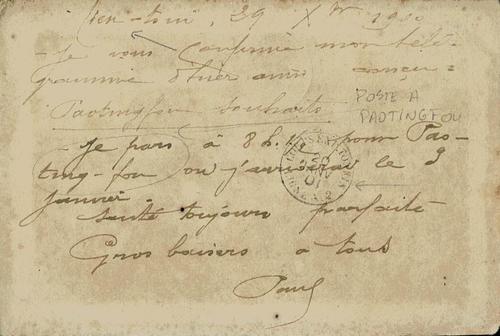 Tien-tsin, 29 Xbre 1900
- Je vous confirme mon télé-
gramme d'hier ainsi conçu :
Paotingfou souhaits
POSTE A
PAOTINGFOU
- Je pars à 8 h. pour Pao-
ting-fou où j'arriverai le 3
janvier -
Santé toujours parfaite
Gros baisers à tous
Paul